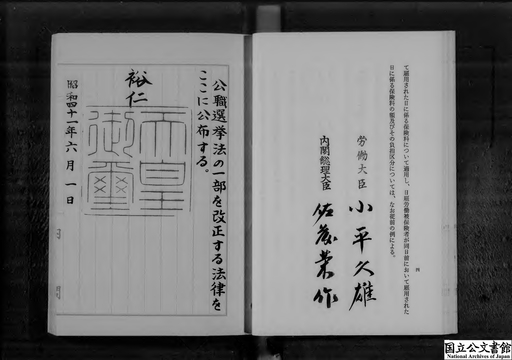 て雇用された日に係る保険料について適用し、日雇労働被保険者が同日前において雇用された
日に係る保険料の額及びその負担区分については、なお従前の例による。
四
労働大臣 小平久雄
内閣総理大臣 佐藤榮作
公職選挙法の一部を改正する法律を
ここに公布する。
裕仁
天皇
御璽
昭和四十一年六月一日
国立公文書館
National Archives of Japan